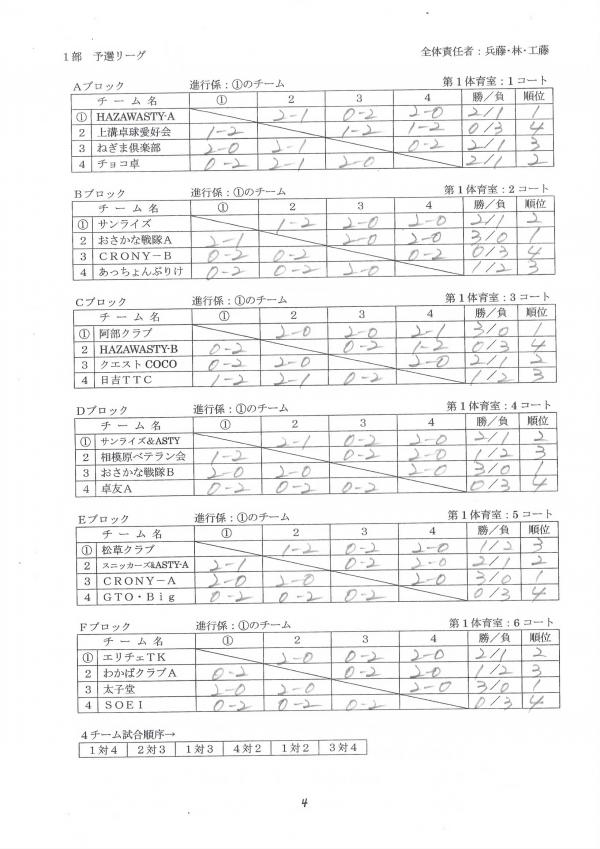 1部 予選リーグ 全体責任者：兵藤・林・工藤
Aブロック 進行係：①のチーム 第1体育室：1コート
チーム名 ① 2 3 4 勝／負 順位
① HAZAWASTY-A 2-1 0-2 2-0 2/1 1
2 上溝卓球愛好会 1-2 1-2 1-2 0/3 4
3 ねぎま倶楽部 2-0 2-1 0-2 2/1 3
4 チョコ卓 0-2 2-1 2-0 2/1 2
Bブロック 進行係：①のチーム 第1体育室：2コート
チーム名 ① 2 3 4 勝／負 順位
① サンライズ 1-2 2-0 2-0 2/1 2
2 おさかな戦隊A 2-1 2-0 2-0 3/0 1
3 CRONY－B 0-2 0-2 0-2 0/3 4
4 あっちょんぶりけ 0-2 0-2 2-0 1/2 3
Cブロック 進行係：①のチーム 第1体育室：3コート
チーム名 ① 2 3 4 勝／負 順位
① 阿部クラブ 2-0 2-0 2-1 3/0 1
2 HAZAWASTY-B 0-2 0-2 1-2 0/3 4
3 クエストCOCO 0-2 2-0 2-0 2/1 2
4 日吉TTC 1-2 2-1 0-2 1/2 3
Dブロック 進行係：①のチーム 第1体育室：4コート
チーム名 ① 2 3 4 勝／負 順位
① サンライズ&ASTY 2-1 0-2 2-0 2/1 2
2 相模原ベテラン会 1-2 0-2 2-0 1/2 3
3 おさかな戦隊B 2-0 2-0 2-0 3/0 1
4 卓友A 0-2 0-2 0-2 0/3 4
Eブロック 進行係：①のチーム 第1体育室：5コート
チーム名 ① 2 3 4 勝／負 順位
① 松草クラブ 1-2 0-2 2-0 1/2 3
2 スニッカーズ&ASTY-A 2-1 0-2 2-0 2/1 2
3 CRONY－A 2-0 2-0 2-0 3/0 1
4 GTO・Big 0-2 0-2 0-2 0/3 4
Fブロック 進行係：①のチーム 第1体育室：6コート
チーム名 ① 2 3 4 勝／負 順位
① エリチェTK 2-0 0-2 2-0 2/1 2
2 わかばクラブA 0-2 0-2 2-0 1/2 3
3 太子堂 2-0 2-0 2-0 3/0 1
4 SOEI 0-2 0-2 0-2 0/3 4
4チーム試合順序→
1対4 2対3 1対3 4対2 1対2 3対4
4